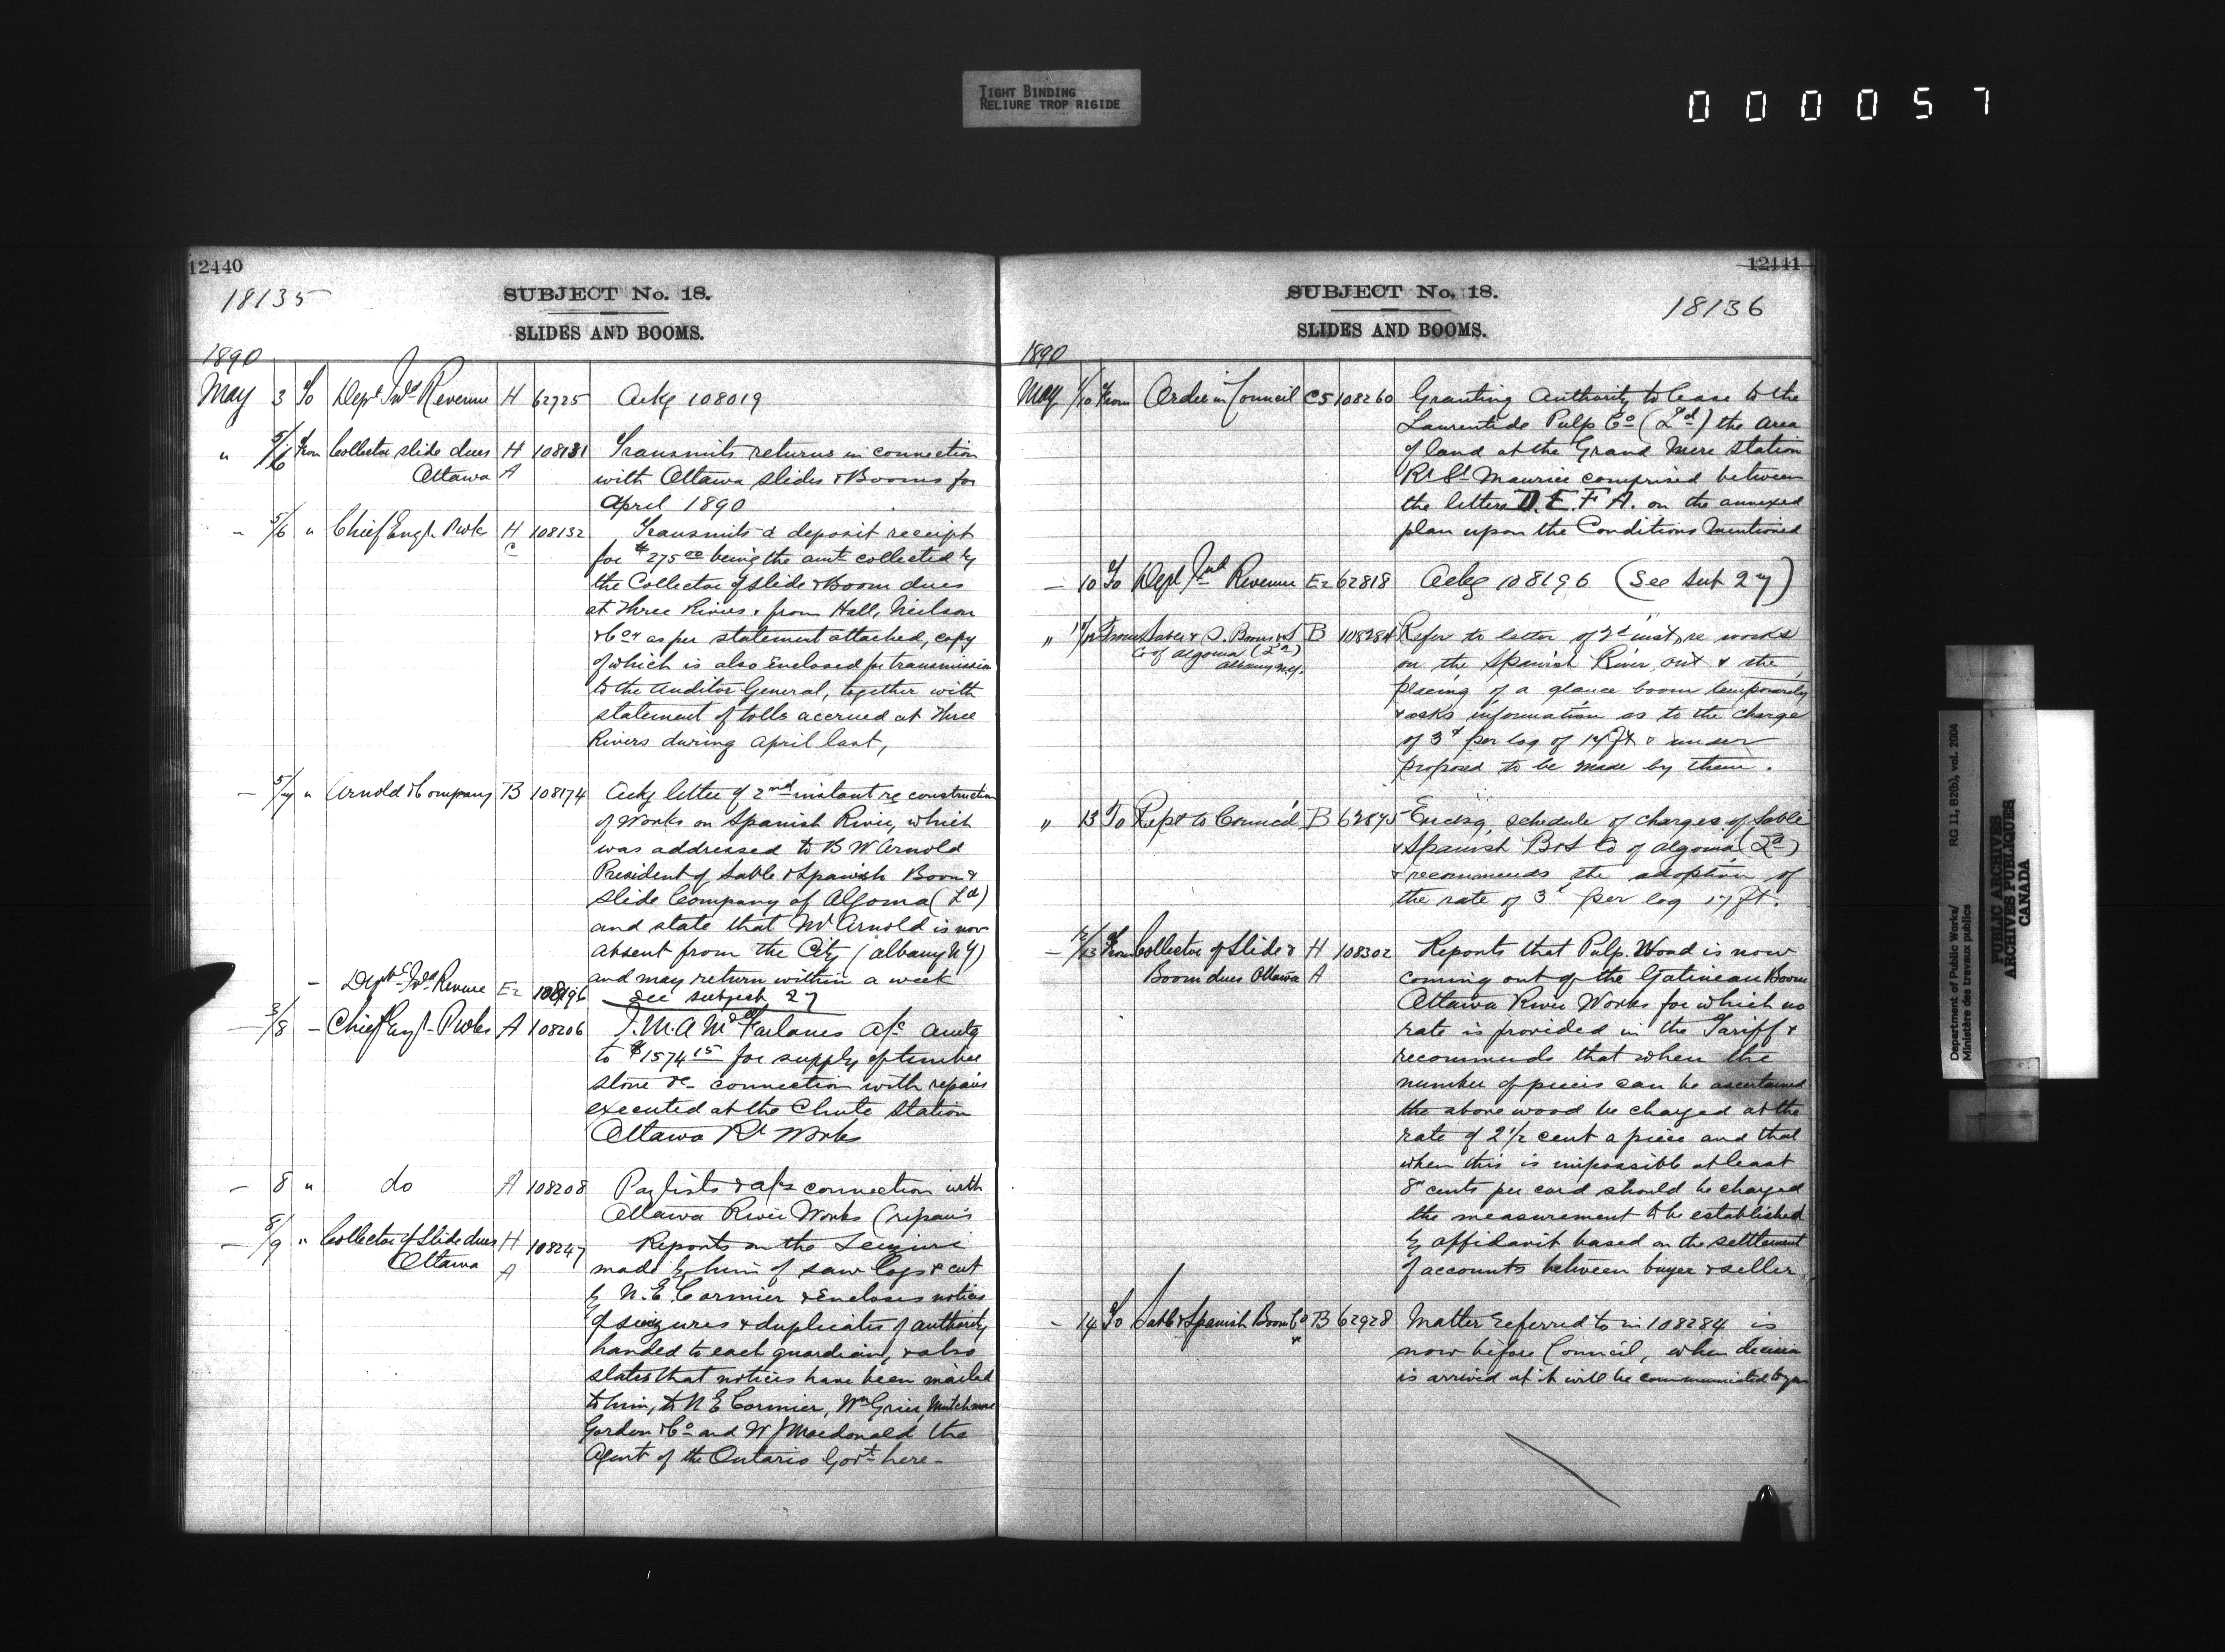 TIGHT BINDING
RELIURE TROP RIGIDE
000057
12440
18135
SUBJECT No. 18.
SLIDES AND BOOMS.
1890
May 3 To Dept Ind Revenue H 62725 Ackg 108019
" 5/6 From Collector slide dues H 108131 Transmits returns in connection
Ottawa A with Ottawa slides & Booms for
April 1890
- 5/6 " Chief Engr P Wks H 108132 Transmits a deposit receipt
C for $275 00 being the amt collected by
the Collector of slide & Boom dues
at Three Rivers, from Hall, Neilson
& Co as per statement attached, copy
of which is also Enclosed for transmission
to the Auditor General, together with
statement of tolls accrued at Three
Rivers during April last,
- 5/7 " Arnold & Company B 108174 Ackg letter of 2nd instant re construction
of Works on Spanish River, which
was addressed to B W Arnold
President of Sable & Spanish Boom &
Slide Company of Algoma (Ld)
and state that Mr Arnold is now
absent from the City (Albany N Y)
and may return within a week
- Dept Ind Revenue Ez 108196 See subject 27
- 3/8 - Chief Engr P Wks A 108206 T. M. A McFarlanes a/c amtg
to $1574 15 for supply of timber
stone &c connection with repairs
executed at the Chute Station
Ottawa Rr Works
- 8 " do A 108208 Paylists & a/cs connection with
Ottawa River Works (repairs
- 8/9 " Collector of Slide dues H 108247 Reports on the Seizure
Ottawa A made by him of saw logs & cut
by N. E. Cormier & Encloses notices
of seizures & duplicates of authority
handed to each guardian, & also
states that notices have been mailed
to him, to N E Cormier, Wm Grier, Mutchmore
Gordon & Co and W J Macdonald the
Agent of the Ontario Govt here -
12441
SUBJECT No. 18.
18136
SLIDES AND BOOMS.
1890
May 1/10 From Order in Council C5 108260 Granting Authority to lease to the
Laurentide Pulp Co (Ld) the area
of land at the Grand Mere Station
Rr St Maurice comprised between
the letters D. E. F A. on the annexed
plan upon the Conditions Mentioned
- 10 To Dept Ind Revenue Ez 62818 Ackg 108196 (See Sub 27)
" From Sable & S. Boom & S B 108284 Refer to letter of 2d inst, re works
Co of Algoma (Ld) on the Spanish River, Ont & the
Albany N.Y. placing of a glance boom temporarily
& asks information as to the charge
of 3 per log of 17 ft & under
proposed to be made by them.
" 13 To Rept to Council B 62875 Enclsg, schedule of charges of Sable
& Spanish B & S Co of Algoma (Ld)
& recommends the adoption of
the rate of 3 per log 17 ft.
- 12/13 From Collector of Slide & H 108302 Reports that Pulp Wood is now
Boom dues Ottawa A coming out of the Gatineau Boom
Ottawa River Works for which no
rate is provided in the Tariff &
recommends that when the
number of pieces can be ascertained
the above wood be charged at the
rate of 2 1/2 cent a piece and that
when this is impossible at least
8 cents per cord should be charged
the measurement to be established
by affidavit based on the settlement
of accounts between buyer & seller
- 14 To Sable & Spanish Boom Co B 62928 Matter referred to in 108284 is
now before Council, when decision
is arrived at it will be communicated to you
Department of Public Works/
Ministère des travaux publics
RG 11, B2(b), vol. 2004
PUBLIC ARCHIVES
ARCHIVES PUBLIQUES
CANADA